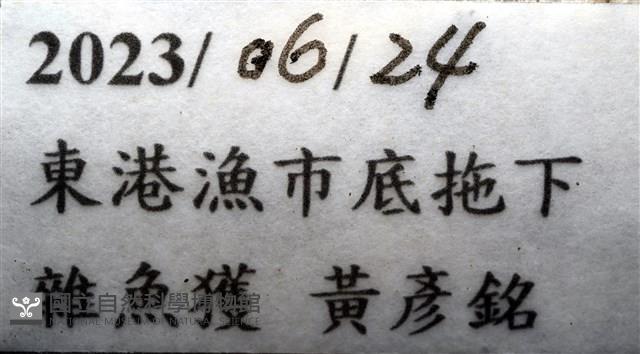 2023/06/24
東港漁市底拖下
雜魚獲 黃彥銘
國立自然科學博物館
NATIONAL MUSEUM OF NATURAL SCIENCE